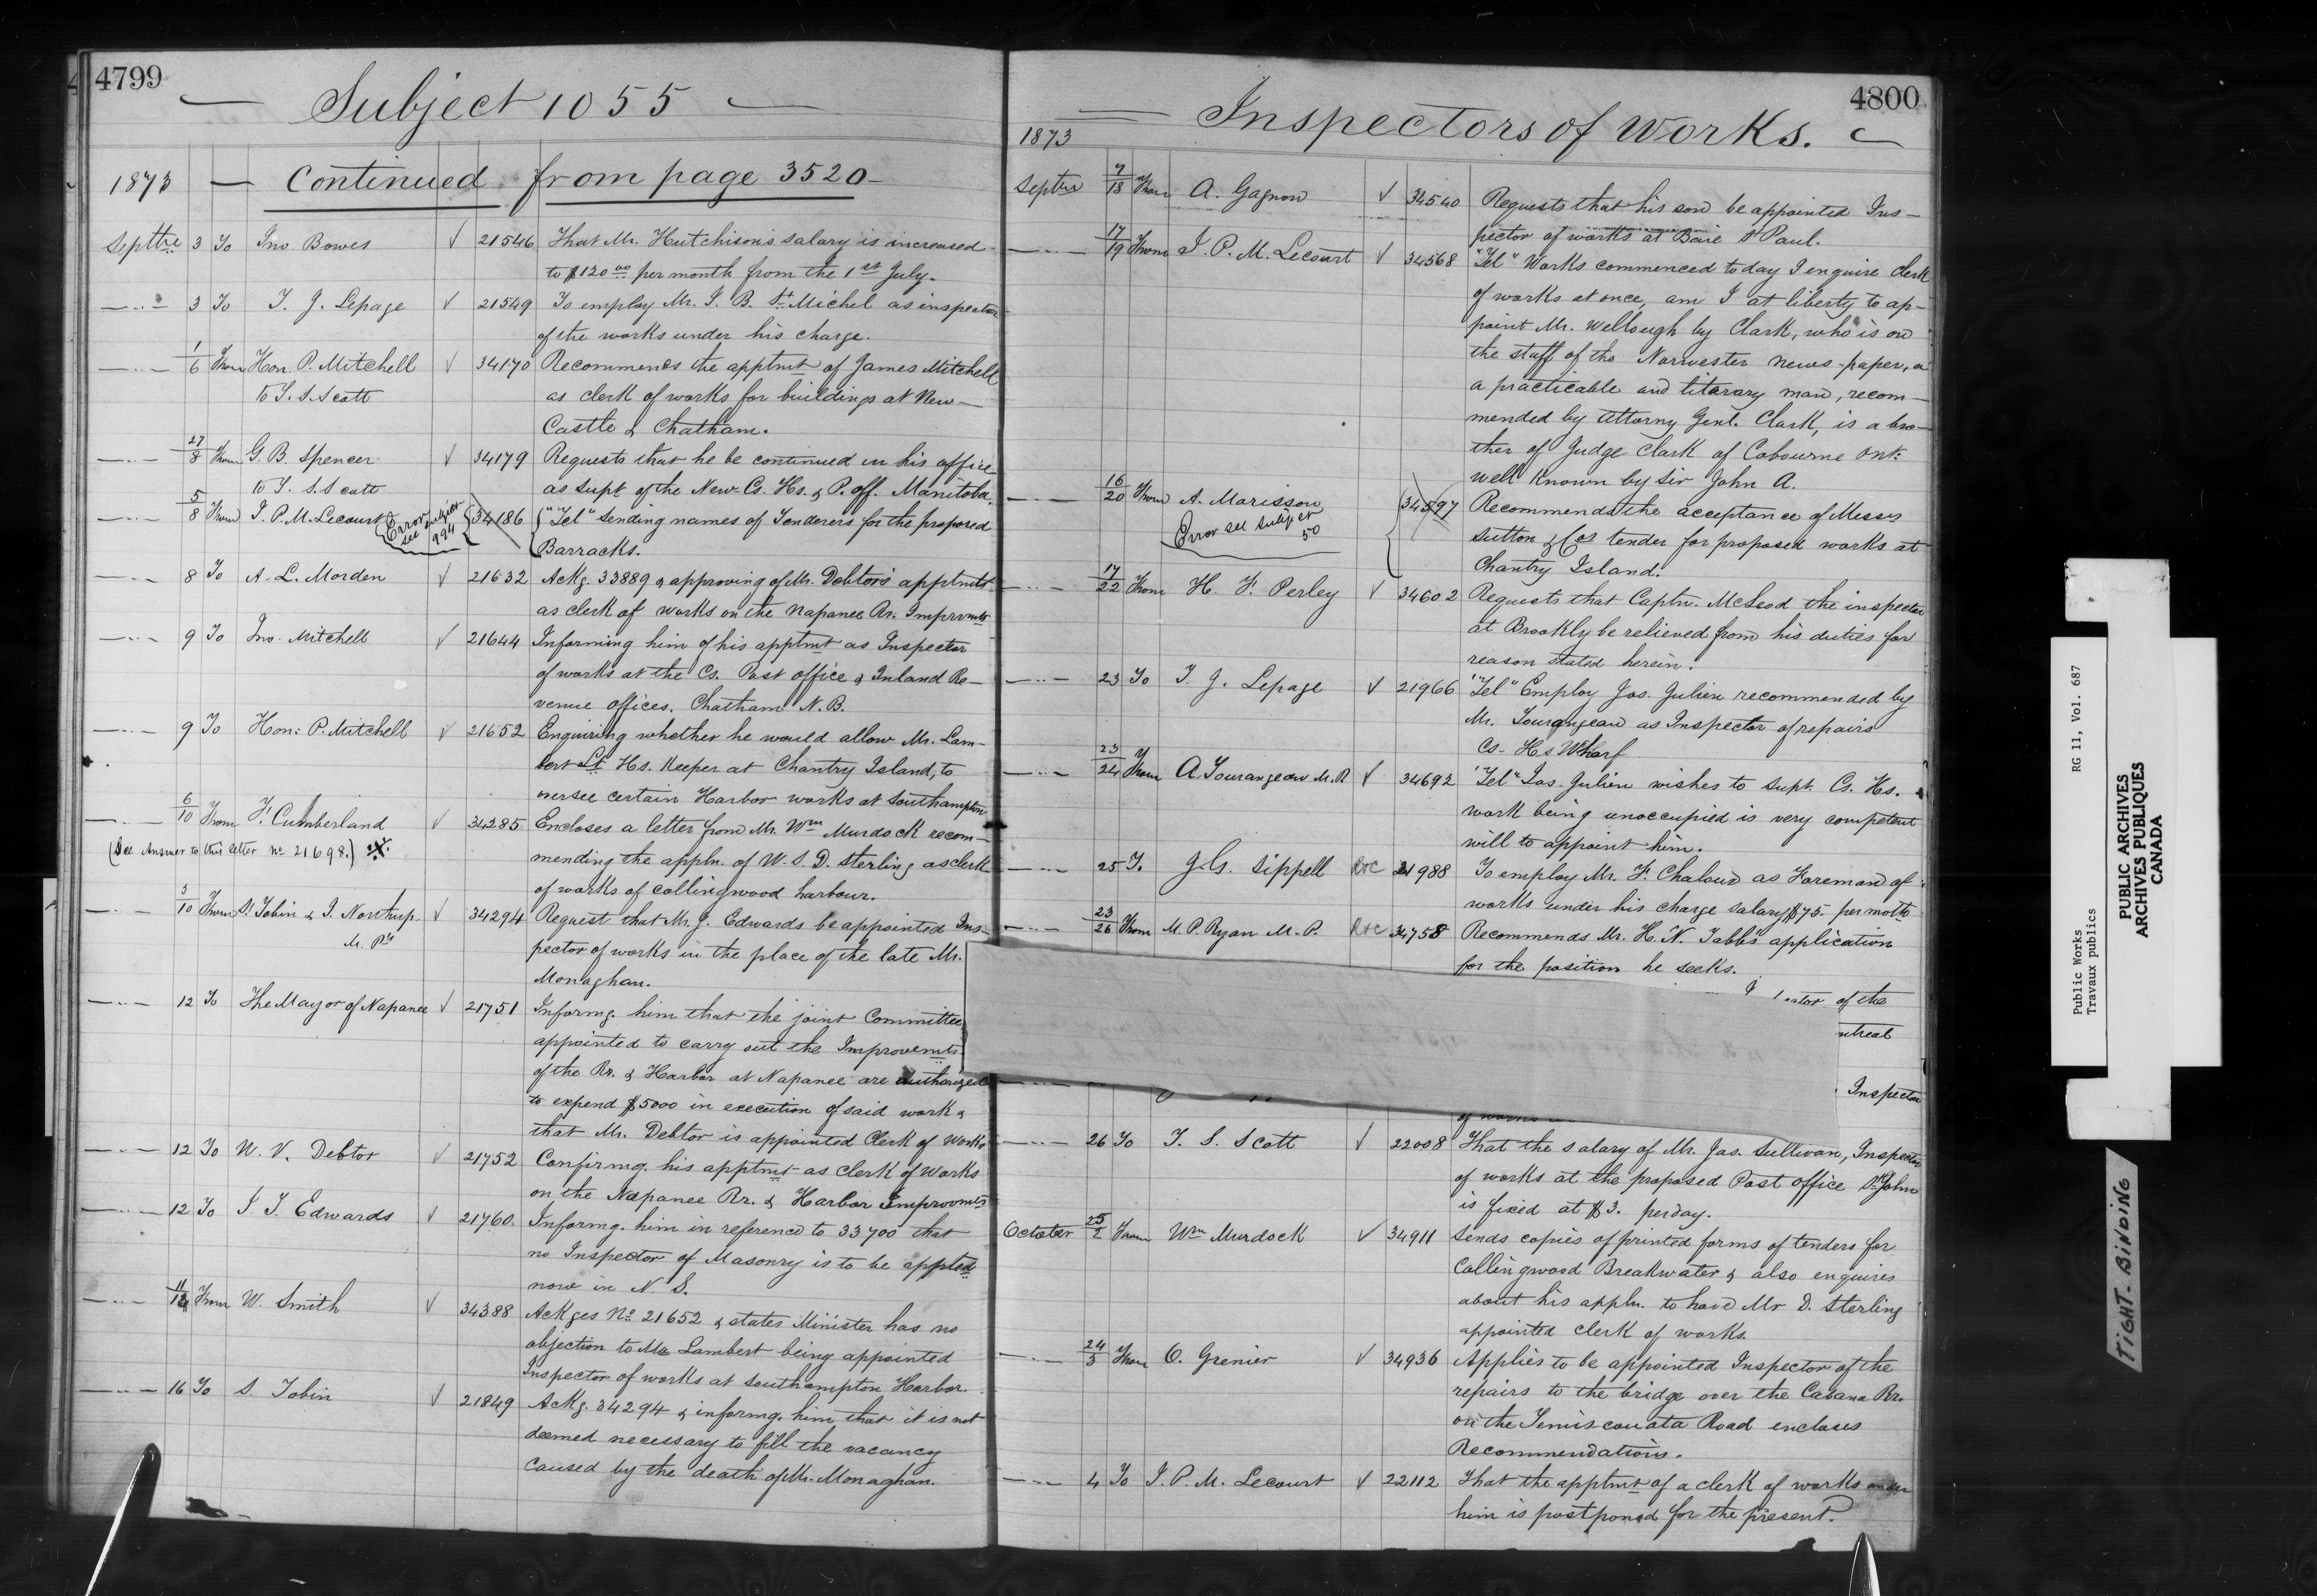 4799
Subject 1055
1873 — Continued from page 3520 —
Septbre 3 To Jno Bowes √ 21546 That Mr. Hutchison's salary is increased
to $120 00 per month from the 1st July.
—..— 3 To T. J. Lepage √ 21549 To employ Mr. J. B. St. Michel as inspector
of the works under his charge.
—..— 1/6 From Hon. P. Mitchell √ 34170 Recommends the apptmt of James Mitchell
to T. S. Scott as clerk of works for buildings at New—
Castle & Chatham.
—..— 27/8 From G. B. Spencer √ 34179 Requests that he be continued in his office
to T. S. Scott as Supt of the New Cs. Hs. & P. off. Manitoba.
5/8 From J. P. M. Lecourt (Error see subject 994) 34186 "Tel" sending names of Tenderers for the proposed
Barracks.
—..— 8 To A. L. Morden √ 21632 Ackg. 33889 & approving of Mr. Debtor's apptmt
as clerk of works on the Napanee Rr. Improvmts
—..— 9 To Jno. Mitchell √ 21644 Informing him of his apptmt as Inspector
of works at the Cs. Post office & Inland Re—
venue offices. Chatham N.B.
—..— 9 To Hon: P. Mitchell √ 21652 Enquiring whether he would allow Mr. Lam—
bert Lt Hs. Keeper at Chantry Island, to
oversee certain Harbor works at Southampton
—..— 6/10 From F. Cumberland √ 34285 Encloses a letter from Mr. Wm Murdock recom—
(See Answer to this letter No 21698.) mending the appln. of W. S. D. Sterling as clerk
of works of Collingwood harbour.
—..— 3/10 From S. Tobin & J. Northup √ 34294 Request that Mr. J. Edwards be appointed Ins—
M. Ps pector of works in the place of the late Mr.
Monaghan.
—..— 12 To The Mayor of Napanee √ 21751 Informg. him that the joint Committee
appointed to carry out the Improvemts
of the Rr. & Harbor at Napanee are authorized
to expend $5000 in execution of said work &
that Mr. Debtor is appointed Clerk of Works
—..— 12 To W. V. Debtor √ 21752 Confirmg. his apptmt as Clerk of Works
on the Napanee Rr. & Harbor Improvmts
—..— 12 To J. T. Edwards √ 21760. Informg. him in reference to 33700 that
no Inspector of Masonry is to be appted
now in N. S.
—..— From W. Smith √ 34388 Ackges No 21652 & states Minister has no
objection to Mr Lambert being appointed
Inspector of works at Southampton Harbor.
—..— 16 To S. Tobin √ 21849 Ackg. 34294 & informg. him that it is not
deemed necessary to fill the vacancy
caused by the death of Mr. Monaghan.
4800
Inspectors of Works.
1873
Septbre 7/18 From A. Gagnon √ 34540 Requests that his son be appointed Ins—
pector of works at Baie St Paul.
—..— 17/19 From J. P. M. Lecourt √ 34568 "Tel" Works commenced today I enquire Clerk
of works at once, am I at liberty to ap—
point Mr. Wellough by Clark, who is on
the staff of the Norwester news-paper, a
a practicable and literary man, recom—
mended by Attorny Genl. Clark, is a bro—
ther of Judge Clark of Cobourne Ont:
well known by Sir John A.
—..— 16/20 From A. Morisson 34597 Recommends the acceptance of Messrs
Error see subject 50 Sutton & Cos tender for proposed works at
Chantry Island.
—..— 17/22 From H. F. Perley √ 34602 Requests that Captn. McLeod the inspector
at Brookly be relieved from his duties for
reason stated herein.
—..— 23 To T. J. Lepage √ 21966 "Tel" Employ Jos. Julien recommended by
Mr. Tourangeau as Inspector of repairs
Cs. Hs Wharf
—..— 23/24 From A. Tourangeau M.P. √ 34692 "Tel" Jos. Julien wishes to supt. Cs. Hs.
work being unoccupied is very competent
will to appoint him.
—..— 25 To J. G. Sippell R&C 21988 To employ Mr. F. Chaloud as Foreman of
works under his charge salary $75. per moth
—..— 23/26 From M. P. Ryan M. P. R&C 34758 Recommends Mr. H. N. Tabb's application
for the position he seeks.
of the
ntreal
Inspector
—..— 26 To T. S. Scott √ 22008 That the salary of Mr. Jas. Sullivan, Inspector
of works at the proposed Post office St. John
is fixed at $3. per day.
October 25/2 From Wm Murdock √ 34911 Sends copies of printed forms of tenders for
Collingwood Breakwater & also enquires
about his appln. to have Mr D. Sterling
appointed clerk of works.
—..— 24/3 From O. Grenier √ 34936 Applies to be appointed Inspector of the
repairs to the bridge over the Cabana Rr.
on the Temiscouata Road encloses
Recommendations.
—..— 4 To J. P. M. Lecourt √ 22112 That the apptmt of a clerk of works under
him is postponed for the present.
Public Works RG 11, Vol. 687
Travaux publics
PUBLIC ARCHIVES
ARCHIVES PUBLIQUES
CANADA
TIGHT-BINDING